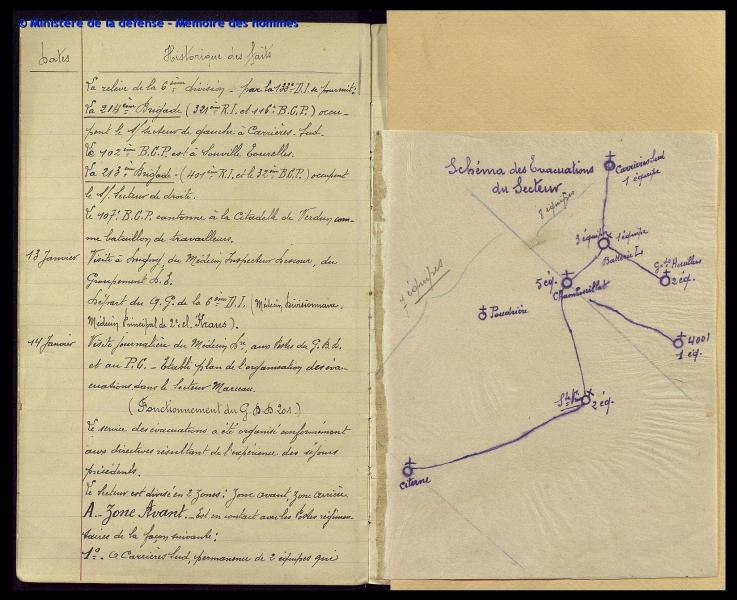 © Ministère de la défense - Mémoire des hommes
Dates
Historique des faits
La relève de la 6ème division - par la 133e D.I. se poursuit.
La 214ème Brigade (321ème R.I. et 116e B.C.P.) occu-
pent le s/ secteur de gauche à Carrières-Sud.
Le 102e B.C.P. est à Souville Tourelles.
La 213e Brigade - (401e R.I. et le 32ème B.C.P.) occupent
le S/. Secteur de droite.
Le 107e B.C.P. cantonne à la Citadelle de Verdun com-
me bataillon de travailleurs.
13 Janvier
Visite à Dugny, du Médecin Inspecteur, du
Groupement
Départ du Q.G. de la 6ème D.I. (Médecin Divisionnaire,
Médecin Principal de 2e cl. Kraus).
14 Janvier
Visite journalière du Médecin, aux Postes du G.B.D.
et au P.C. - Etablit plan de l'organisation des éva-
cuations, dans le Secteur Marceau.
(Fonctionnement du G.B.D. 201.)
Le service des évacuations a été organisé conformément
aux directives résultant de l'expérience des séjours
précédents.
Le Secteur est divisé en 2 Zones: Zone avant, Zone arrière
A. - Zone Avant. - Est en contact avec les Postes régimen-
taires de la façon suivante:
1°. - Carrières Sud, permanence de 2 équipes qui
Schéma des Evacuations
du Secteur
Carrières Sud
1 équipe
8 équipes
3 équipes
1 équipe
Batterie
7 équipes
5 éq.
2 éq.
Poudrière
4001
1 éq.
2 éq.
Citerne